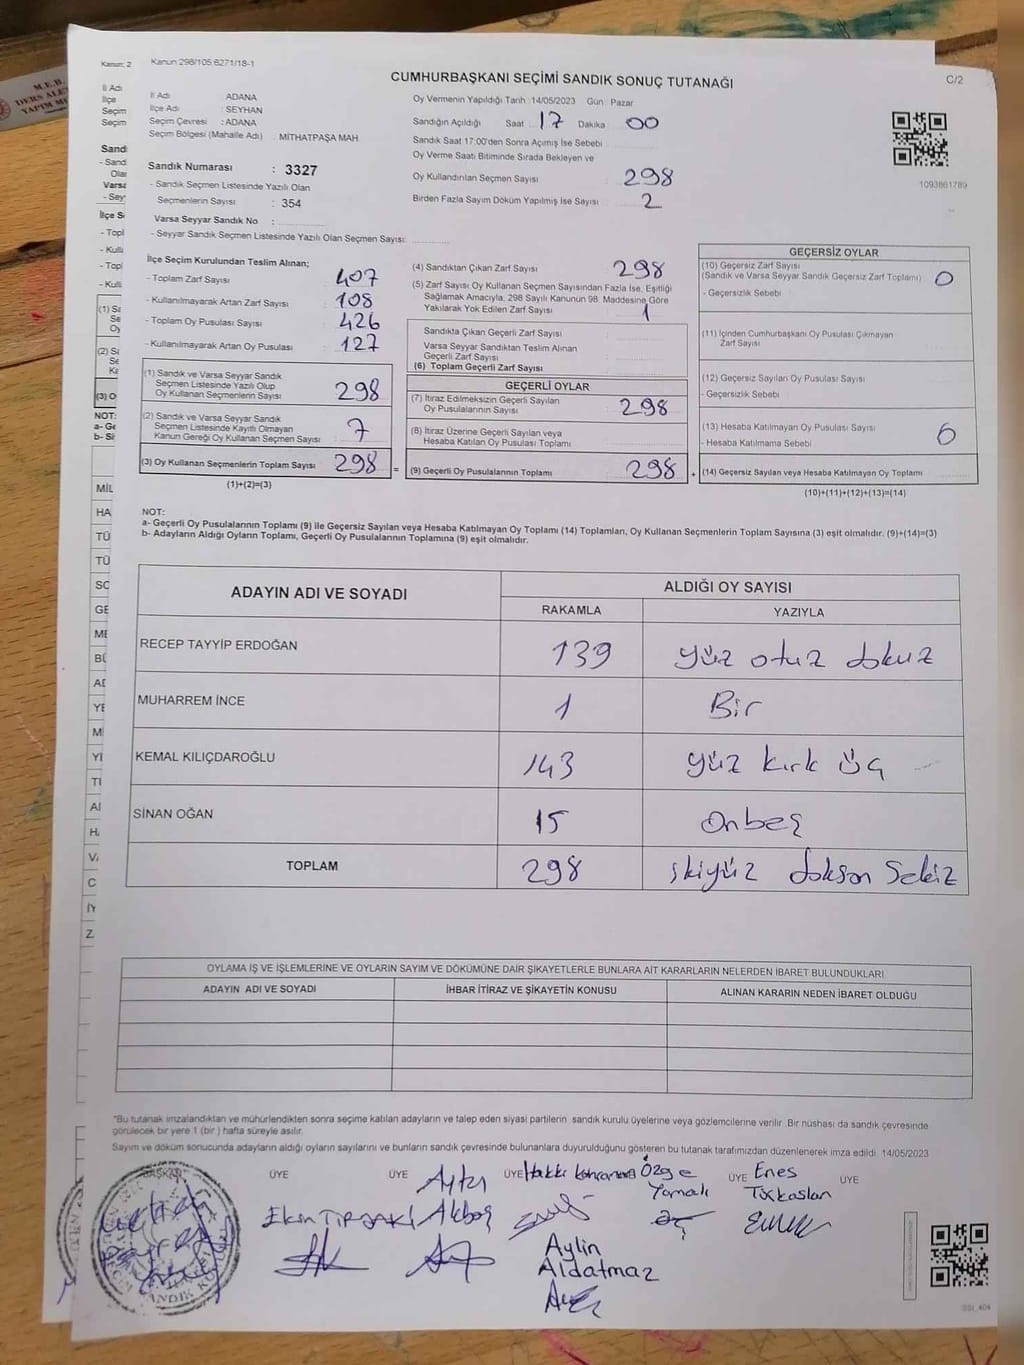 Kanun: 2
Kanun:298/105 6271/18-1
C/2
CUMHURBAŞKANI SEÇİMİ SANDIK SONUÇ TUTANAĞI
İl Adı ADANA
İlçe Adı : SEYHAN
Seçim Çevresi : ADANA
Seçim Bölgesi (Mahalle Adı) : MİTHATPAŞA MAH
Sandık Numarası : 3327
- Sandık Seçmen Listesinde Yazılı Olan
Seçmenlerin Sayısı : 354
Varsa Seyyar Sandık No :
- Seyyar Sandık Seçmen Listesinde Yazılı Olan Seçmen Sayısı:
Oy Vermenin Yapıldığı Tarih :14/05/2023 Gün : Pazar
Sandığın Açıldığı Saat 17 Dakika 00
Sandık Saat 17:00'den Sonra Açımış İse Sebebi
Oy Verme Saati Bitiminde Sırada Bekleyen ve
Oy Kullandırılan Seçmen Sayısı : 298
Birden Fazla Sayım Döküm Yapılmış İse Sayısı : 2
1093861789
İlçe Seçim Kurulundan Teslim Alınan;
- Toplam Zarf Sayısı : 407
- Kullanılmayarak Artan Zarf Sayısı : 108
- Toplam Oy Pusulası Sayısı : 426
- Kullanılmayarak Artan Oy Pusulası : 127
(1) Sandık ve Varsa Seyyar Sandık
Seçmen Listesinde Yazılı Olup
Oy Kullanan Seçmenlerin Sayısı : 298
(2) Sandık ve Varsa Seyyar Sandık
Seçmen Listesinde Kayıtlı Olmayan
Kanun Gereği Oy Kullanan Seçmen Sayısı : 7
(3) Oy Kullanan Seçmenlerin Toplam Sayısı : 298 =
(1)+(2)=(3)
(4) Sandıktan Çıkan Zarf Sayısı : 298
(5) Zarf Sayısı Oy Kullanan Seçmen Sayısından Fazla İse, Eşitliği
Sağlamak Amacıyla, 298 Sayılı Kanunun 98. Maddesine Göre
Yakılarak Yok Edilen Zarf Sayısı : 1
Sandıkta Çıkan Geçerli Zarf Sayısı
Varsa Seyyar Sandıktan Teslim Alınan
Geçerli Zarf Sayısı
(6) Toplam Geçerli Zarf Sayısı
GEÇERLİ OYLAR
(7) İtiraz Edilmeksizin Geçerli Sayılan
Oy Pusulalarının Sayısı : 298
(8) İtiraz Üzerine Geçerli Sayılan veya
Hesaba Katılan Oy Pusulası Toplamı
(9) Geçerli Oy Pusulalarının Toplamı : 298 +
GEÇERSİZ OYLAR
(10) Geçersiz Zarf Sayısı
(Sandık ve Varsa Seyyar Sandık Geçersiz Zarf Toplamı) : 0
- Geçersizlik Sebebi
(11) İçinden Cumhurbaşkanı Oy Pusulası Çıkmayan
Zarf Sayısı
(12) Geçersiz Sayılan Oy Pusulası Sayısı
- Geçersizlik Sebebi
(13) Hesaba Katılmayan Oy Pusulası Sayısı
- Hesaba Katılmama Sebebi
(14) Geçersiz Sayılan veya Hesaba Katılmayan Oy Toplamı
(10)+(11)+(12)+(13)=(14)
NOT:
a- Geçerli Oy Pusulalarının Toplamı (9) ile Geçersiz Sayılan veya Hesaba Katılmayan Oy Toplamı (14) Toplamları, Oy Kullanan Seçmenlerin Toplam Sayısına (3) eşit olmalıdır. (9)+(14)=(3)
b- Adayların Aldığı Oyların Toplamı, Geçerli Oy Pusulalarının Toplamına (9) eşit olmalıdır.
ADAYIN ADI VE SOYADI ALDIĞI OY SAYISI
RAKAMLA YAZIYLA
RECEP TAYYİP ERDOĞAN 139 yüz otuz dokuz
MUHARREM İNCE 1 Bir
KEMAL KILIÇDAROĞLU 143 yüz kırk üç
SİNAN OĞAN 15 Onbeş
TOPLAM 298 ikiyüz doksan Sekiz
OYLAMA İŞ VE İŞLEMLERİNE VE OYLARIN SAYIM VE DÖKÜMÜNE DAİR ŞİKAYETLERLE BUNLARA AİT KARARLARIN NELERDEN İBARET BULUNDUKLARI
ADAYIN ADI VE SOYADI İHBAR İTİRAZ VE ŞİKAYETİN KONUSU ALINAN KARARIN NEDEN İBARET OLDUĞU
"Bu tutanak imzalandıktan ve mühürlendikten sonra seçime katılan adayların ve talep eden siyasi partilerin sandık kurulu üyelerine veya gözlemcilerine verilir. Bir nüshası da sandık çevresinde
görülecek bir yere 1 (bir ) hafta süreyle asılır.
Sayım ve döküm sonucunda adayların aldığı oyların sayılarını ve bunların sandık çevresinde bulunanlara duyurulduğunu gösteren bu tutanak tarafımızdan düzenlenerek imza edildi. 14/05/2023
BAŞKAN ÜYE ÜYE ÜYE ÜYE ÜYE
Hakkı Özge Enes
Yamalı
Akbaş
Aylin
Aldatmaz